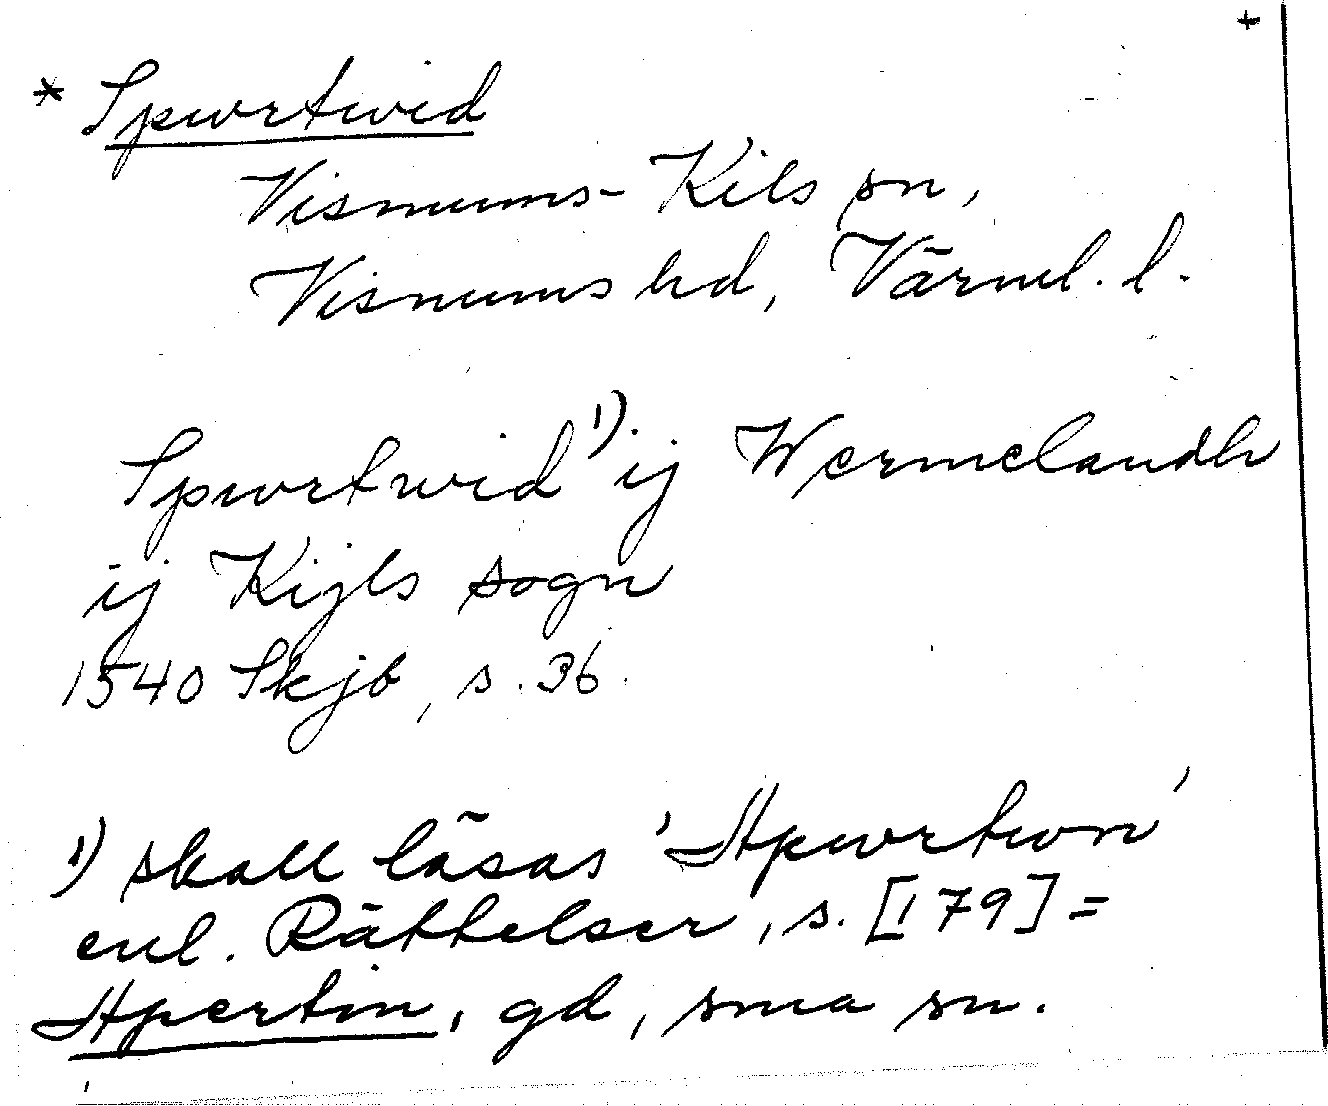 +
* Spwrtwid
Visnums-Kils sn,
Visnums hd, Värml. l.
Spwrtwid¹⁾ ij Wermelandh
ij Kijls sogn
1540 Skjb, s. 36.
¹⁾ skall läsas 'Apwrtwn'
enl. Rättelser, s. [179] =
Apertin, gd, sma sn.